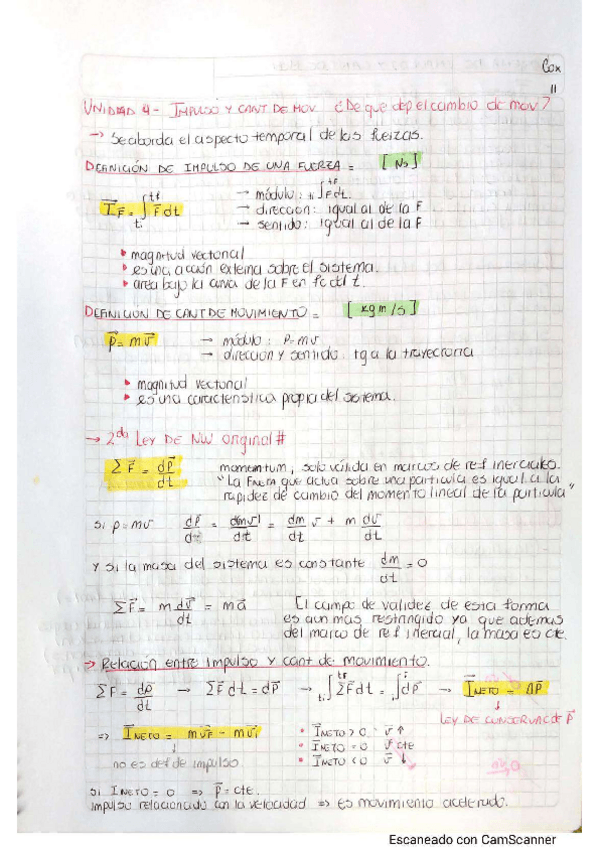 Cax
11
UNIDAD 4 - IMPULSO Y CANT DE MOV ¿De que dep el cambio de mov?
→ Se aborda el aspecto temporal de las fuerzas.
DEFINICIÓN DE IMPULSO DE UNA FUERZA = [Ns]
I⃗F = ∫ti^tf F⃗dt → módulo: ti∫tf Fdt.
→ direccion: igual al de la F
→ sentido: igual al de la F
• magnitud vectorial
• es una acción externa sobre el sistema.
• area bajo la curva de la F en fc del t.
DEFINICIÓN DE CANT DE MOVIMIENTO = [kgm/s]
p⃗ = mv⃗ → módulo: p=mv
→ direccion y sentido: tg a la trayectoria
• magnitud vectorial
• es una caracteristica propia del sistema.
→ 2da LEY DE NW original #
ΣF⃗ = dp⃗/dt momentum, solo válida en marcos de ref inerciales.
"La FNETA que actua sobre una particula es igual a la
rapidez de cambio del momento lineal de la particula"
si p=mv dp⃗/dt = dmv/dt = dm/dt v + m dv/dt
y si la masa del sistema es constante dm/dt = 0
ΣF⃗ = m dv⃗/dt = ma⃗ El campo de validez de esta forma
es aun mas restringido ya que ademas
del marco de ref inercial, la masa es cte.
→ Relación entre Impulso y cant de movimiento.
ΣF = dp⃗/dt → ΣF⃗dt = dp⃗ → ti∫tf ΣF⃗dt = ∫dp⃗ → I⃗NETO = ΔP⃗
LEY DE CONSERVAC DE P⃗
⇒ I⃗NETO = mv⃗F - mv⃗i
• I⃗NETO > 0 v⃗ ↑
• I⃗NETO = 0 v⃗ cte
• I⃗NETO < 0 v⃗ ↓
no es def de impulso
si INETO = 0 ⇒ p⃗ = cte.
impulso relacionado con la velocidad ⇒ es movimiento acelerado.
Escaneado con CamScanner